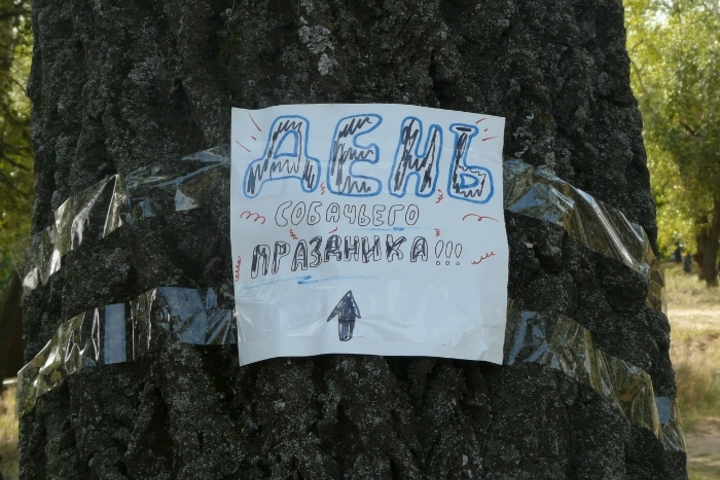 ДЕНЬ
СОБАЧЬЕГО
ПРАЗДНИКА!!!